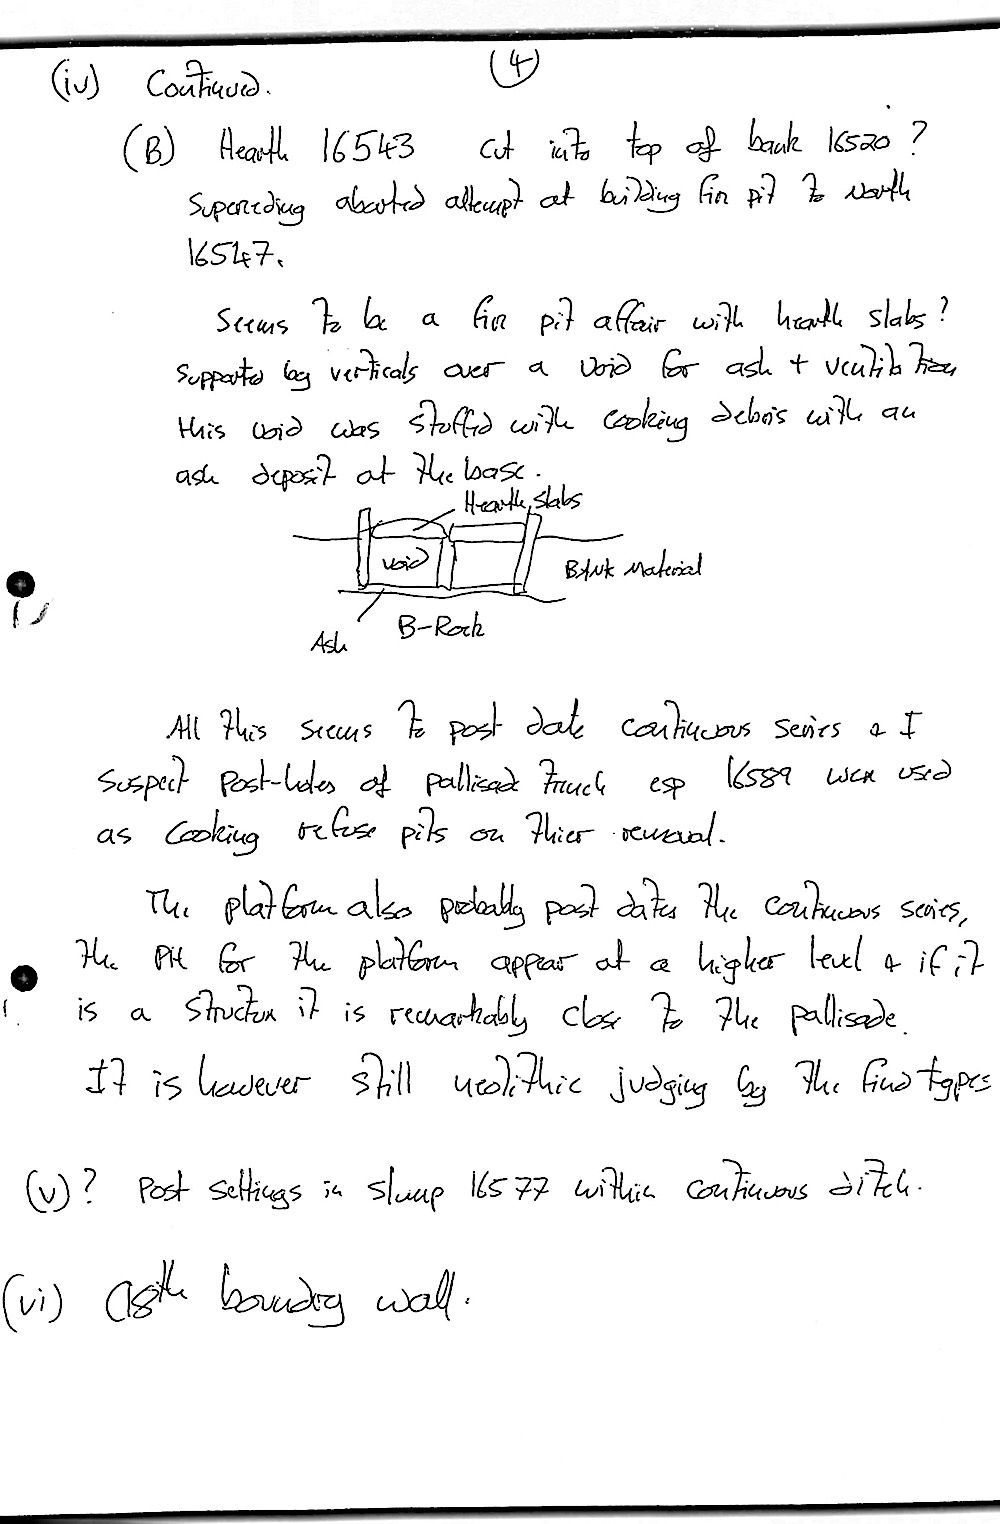 (4)
(iv) Continued.
(B) Hearth 16543 cut into top of bank 16520?
Superceding aborted attempt at building fire pit to North
16547.
Seems to be a fire pit affair with hearth slabs?
Supported by verticals over a void for ash + ventilation
this void was stuffed with cooking debris with an
ash deposit at the base.
Hearth slabs
void
Bank Material
Ash
B-Rock
All this seems to post date continuous series & I
suspect post-holes of pallisade trench esp 16589 were used
as cooking refuse pits on thier removal.
The platform also probably post dates the continuous series,
the PH for the platform appear at a higher level & if it
is a structure it is remarkably close to the pallisade.
It is however still neolithic judging by the find types
(v)? Post settings in slump 16577 within continuous ditch.
(vi) C18th boundry wall.